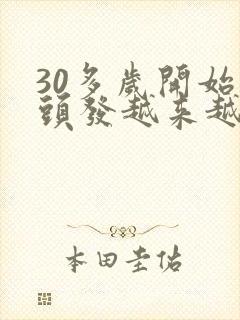 30多歲開始
頭發越来越
本田圭佑